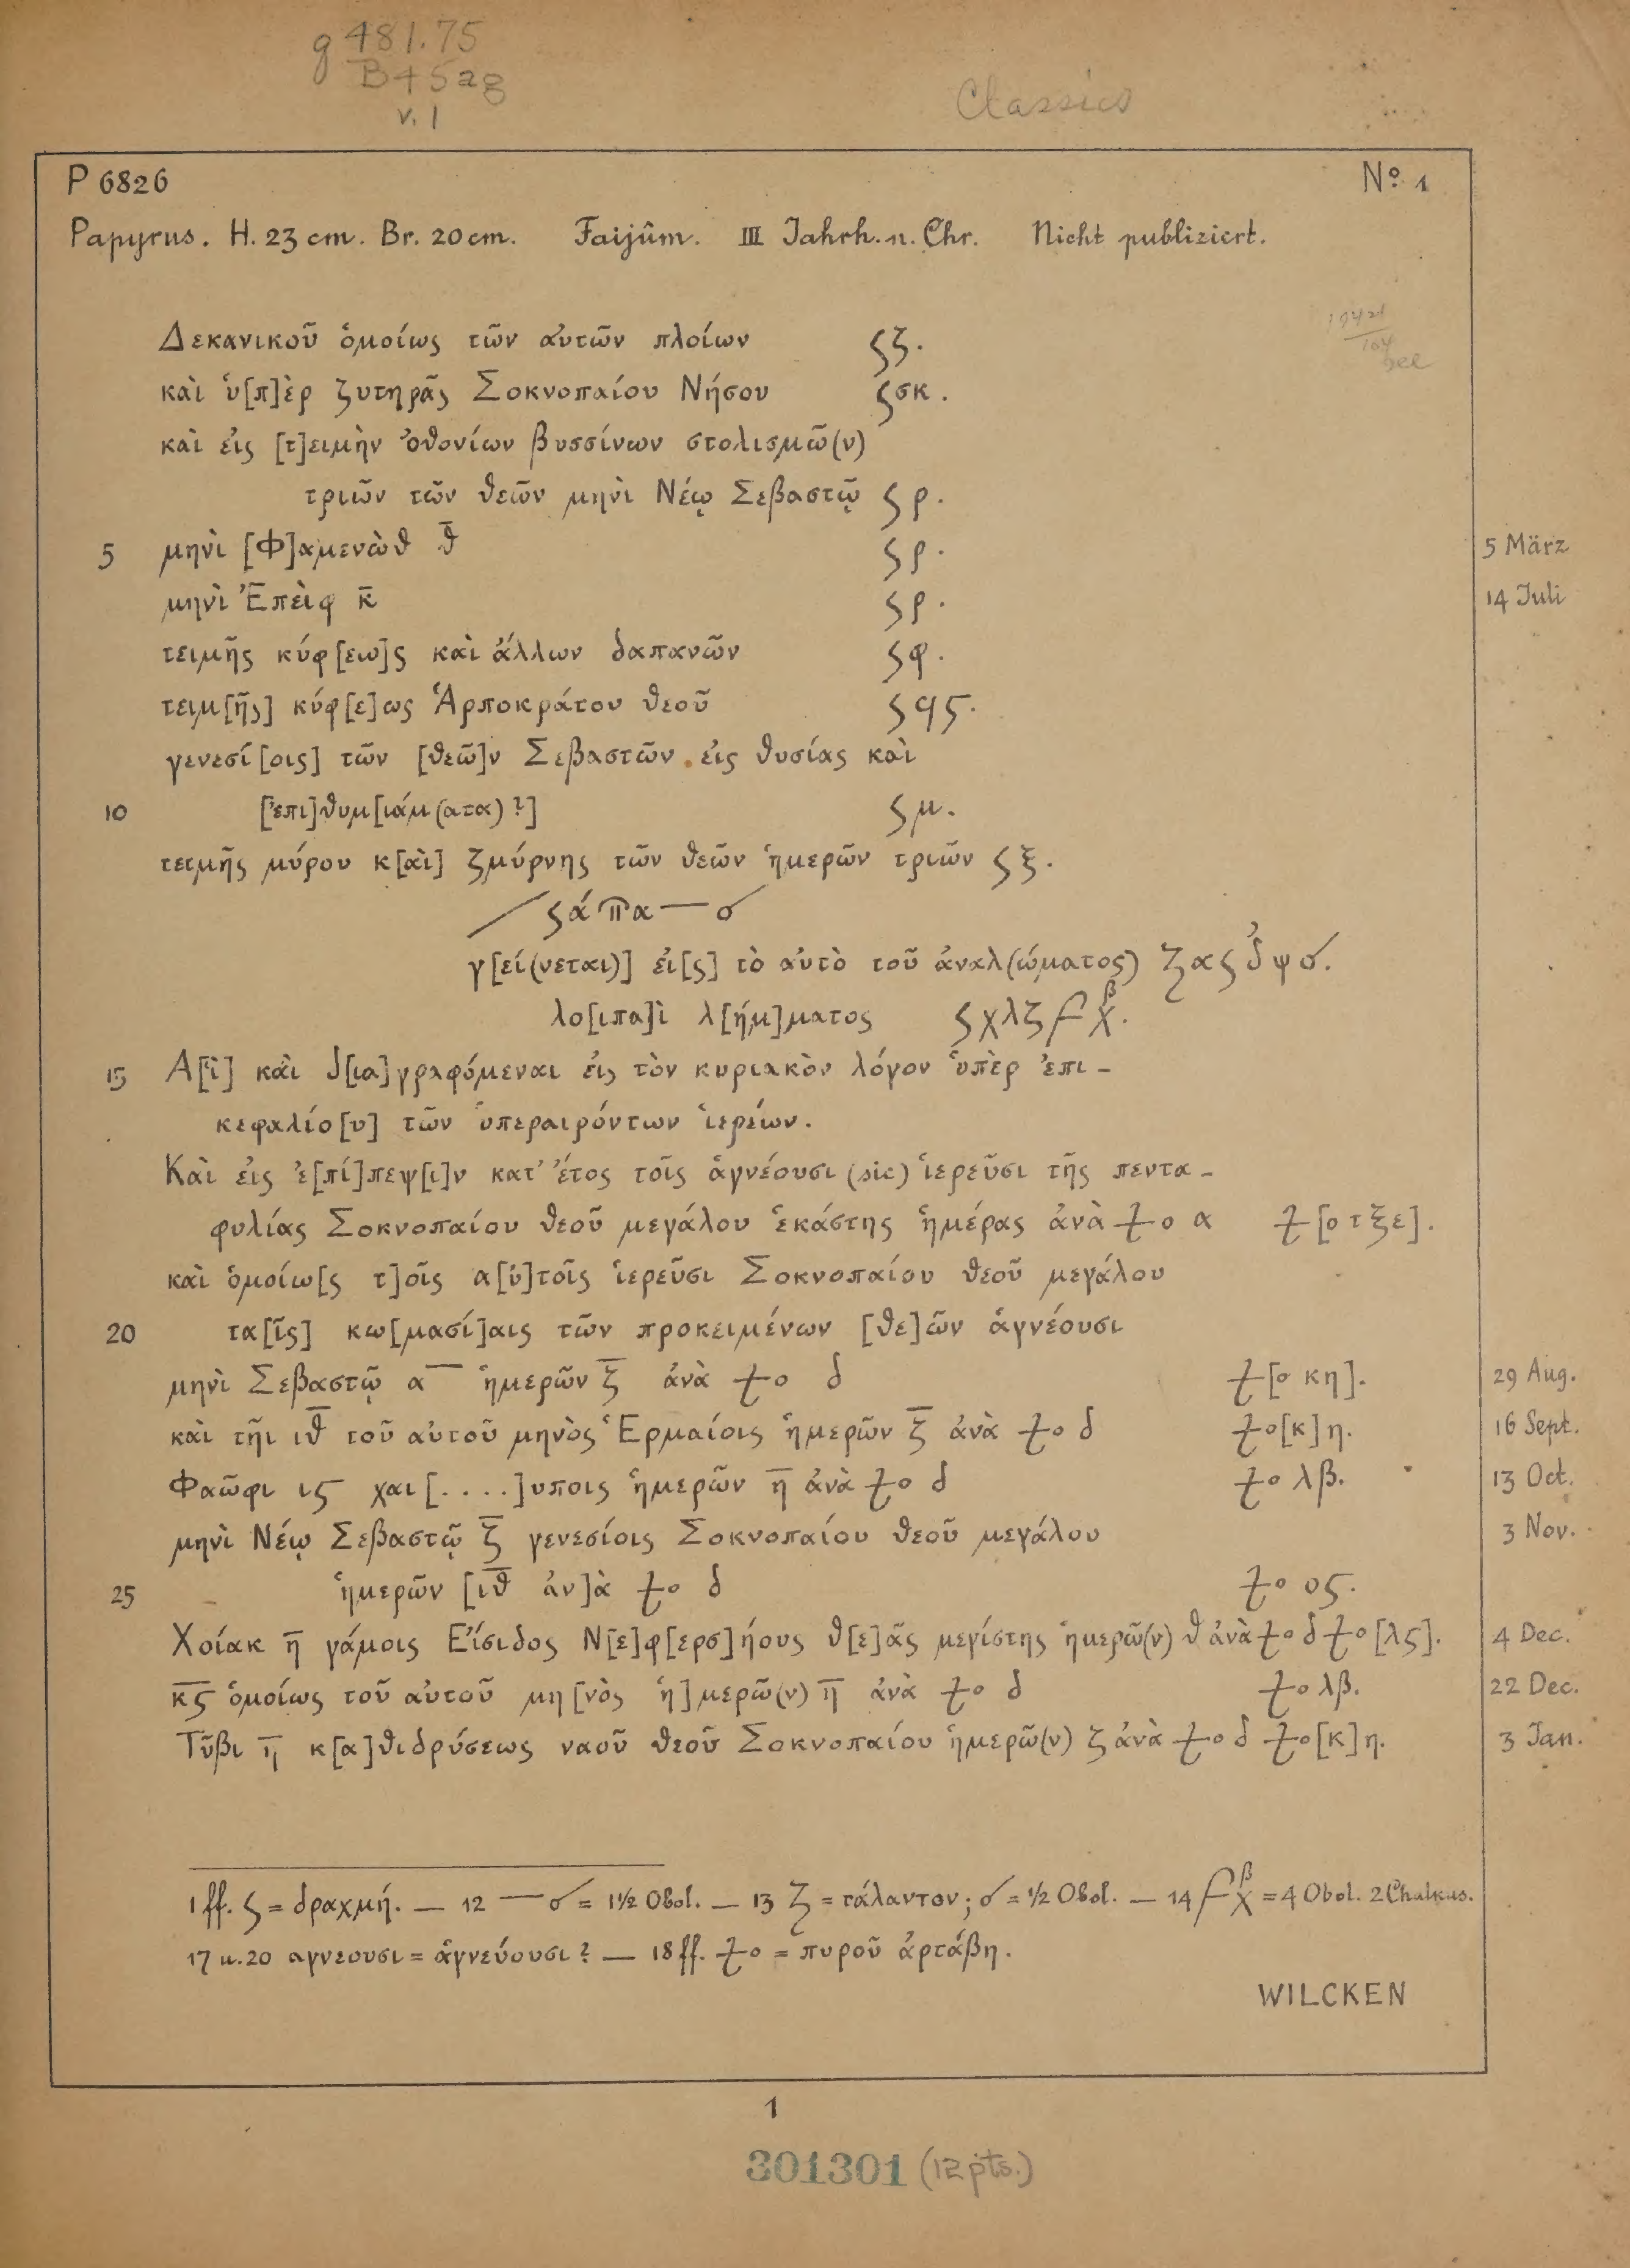 g 481.75
B45ag
v. 1
Classics
P 6826 Nº 1
Papyrus. H. 23 cm. Br. 20 cm. Faijûm. III Jahrh. n. Chr. Nicht publiziert.
Δεκανικοῦ ὁμοίως τῶν αὐτῶν πλοίων ϛζ.
καὶ ὑ[π]ὲρ ζυτηρᾶς Σοκνοπαίου Νήσου ϛσκ.
καὶ εἰς [τ]ειμὴν ὀθονίων βυσσίνων στολισμῶ(ν)
τριῶν τῶν θεῶν μηνὶ Νέῳ Σεβαστῷ ϛρ.
5 μηνὶ [Φ]αμενὼθ θ̅ ϛρ. 5 März
μηνὶ Ἐπεὶφ κ̅ ϛρ. 14 Juli
τειμῆς κύφ[εω]ς καὶ ἄλλων δαπανῶν ϛφ.
τειμ[ῆς] κύφ[ε]ως Ἁρποκράτου θεοῦ ϛϥϛ.
γενεσί[οις] τῶν [θεῶ]ν Σεβαστῶν εἰς θυσίας καὶ
10 [ἐπι]θυμ[ιάμ(ατα)?] ϛμ.
τειμῆς μύρου κ[αὶ] ζμύρνης τῶν θεῶν ἡμερῶν τριῶν ϛξ.
γ[εί(νεται)] εἰ[ς] τὸ αὐτὸ τοῦ ἀναλ(ώματος)
λο[ιπα]ὶ λ[ήμ]ματος ϛχλζ
15 Α[ἱ] καὶ δ[ια]γραφόμεναι εἰς τὸν κυριακὸν λόγον ὑπὲρ ἐπι-
κεφαλίο[υ] τῶν ὑπεραιρόντων ἱερείων.
Καὶ εἰς ἐ[πί]πεψ[ι]ν κατ’ ἔτος τοῖς ἁγνέουσι (sic) ἱερεῦσι τῆς πεντα-
φυλίας Σοκνοπαίου θεοῦ μεγάλου ἑκάστης ἡμέρας ἀνὰ ⳨ο α ⳨[ο τξε].
καὶ ὁμοίω[ς τ]οῖς α[ὐ]τοῖς ἱερεῦσι Σοκνοπαίου θεοῦ μεγάλου
20 τα[ῖς] κω[μασί]αις τῶν προκειμένων [θε]ῶν ἁγνέουσι
μηνὶ Σεβαστῷ α̅ ἡμερῶν ζ̅ ἀνὰ ⳨ο δ ⳨[ο κη]. 29 Aug.
καὶ τῆι ιθ̅ τοῦ αὐτοῦ μηνὸς Ἑρμαίοις ἡμερῶν ζ̅ ἀνὰ ⳨ο δ ⳨ο[κ]η. 16 Sept.
Φαῶφι ιϛ χαι[....]υποις ἡμερῶν η̅ ἀνὰ ⳨ο δ ⳨ο λβ. 13 Oct.
μηνὶ Νέῳ Σεβαστῷ ζ̅ γενεσίοις Σοκνοπαίου θεοῦ μεγάλου 3 Nov.
25 ἡμερῶν [ιθ̅ ἀν]ὰ ⳨ο δ ⳨ο οϛ.
Χοίακ η̅ γάμοις Εἴσιδος Ν[ε]φ[ερσ]ήους θ[ε]ᾶς μεγίστης ἡμερῶ(ν) θ ἀνὰ ⳨ο δ ⳨ο [λϛ]. 4 Dec.
κϛ̅ ὁμοίως τοῦ αὐτοῦ μη[νὸς ἡ]μερῶ(ν) η̅ ἀνὰ ⳨ο δ ⳨ο λβ. 22 Dec.
Τῦβι η̅ κ[α]θιδρύσεως ναοῦ θεοῦ Σοκνοπαίου ἡμερῶ(ν) ζ ἀνὰ ⳨ο δ ⳨ο[κ]η. 3 Jan.
1 ff. ϛ = δραχμή. — 12 —σ = 1½ Obol. — 13 ζ = τάλαντον; σ = ½ Obol. — 14 = 4 Obol. 2 Chalkus.
17 u. 20 αγνεουσι = ἁγνεύουσι? — 18 ff. ⳨ο = πυροῦ ἀρτάβη.
WILCKEN
1
301301 (12 pts.)